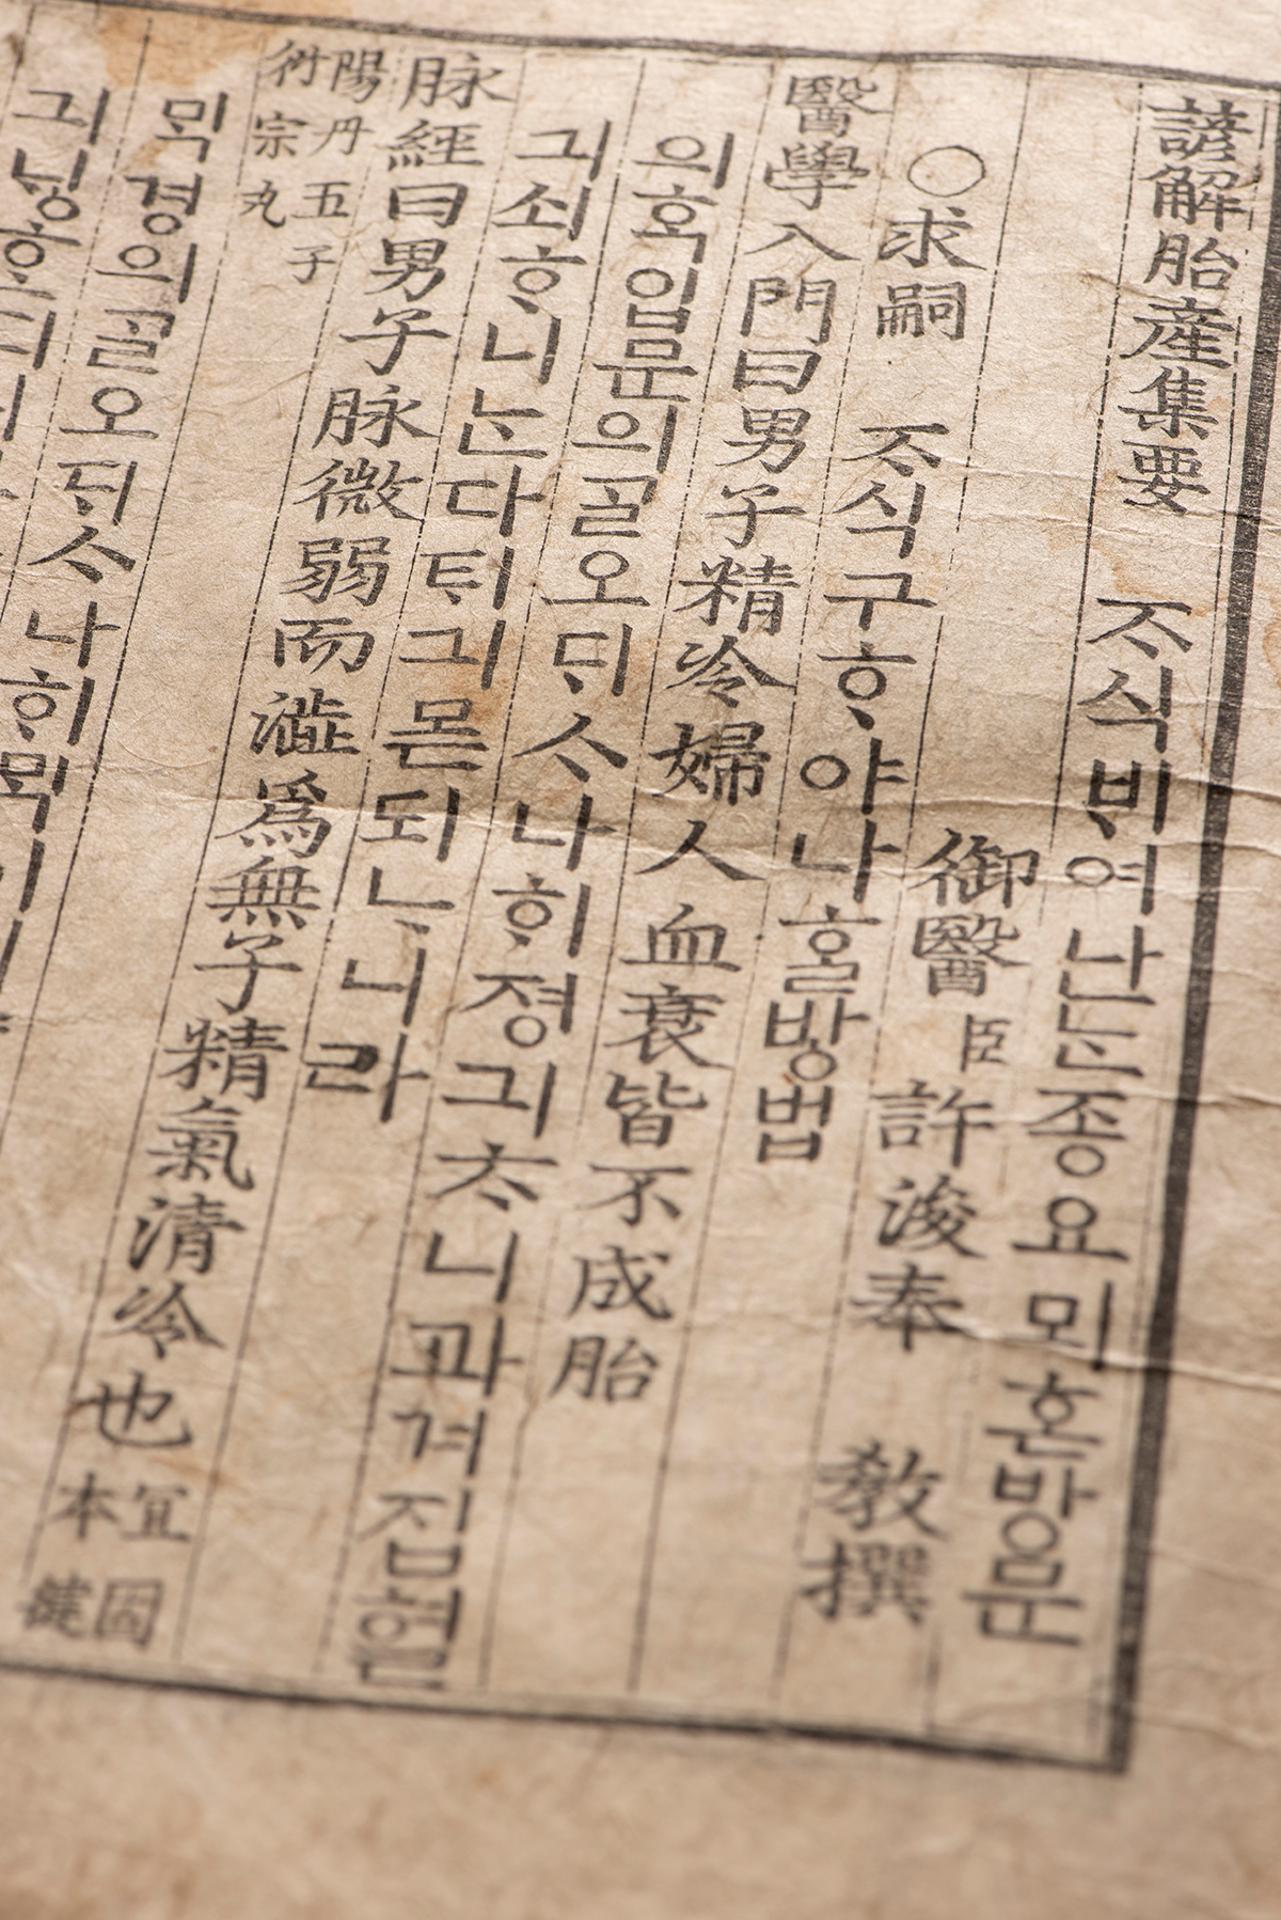 諺解胎產集要 ᄌᆞ식ᄇᆡ여난ᄂᆞᆫ죵요뫼혼방문
御醫臣許浚奉 敎撰
○求嗣 ᄌᆞ식구ᄒᆞ야나홀방법
醫學入門曰男子精冷婦人血衰皆不成胎
의ᄒᆞᆨ입문의ᄀᆞᆯ오ᄃᆡᄉᆞ나ᄒᆡ졍긔ᄎᆞ니과겨집혈
긔쇠ᄒᆞ니ᄂᆞᆫ다ᄐᆡ긔몯되ᄂᆞ니라
脉經曰男子脉微弱而澁爲無子精氣清冷也 宜固本健
陽丹五子衍宗丸
ᄆᆡᆨ경의ᄀᆞᆯ오ᄃᆡᄉᆞ나ᄒᆡᄆᆡᆨ이